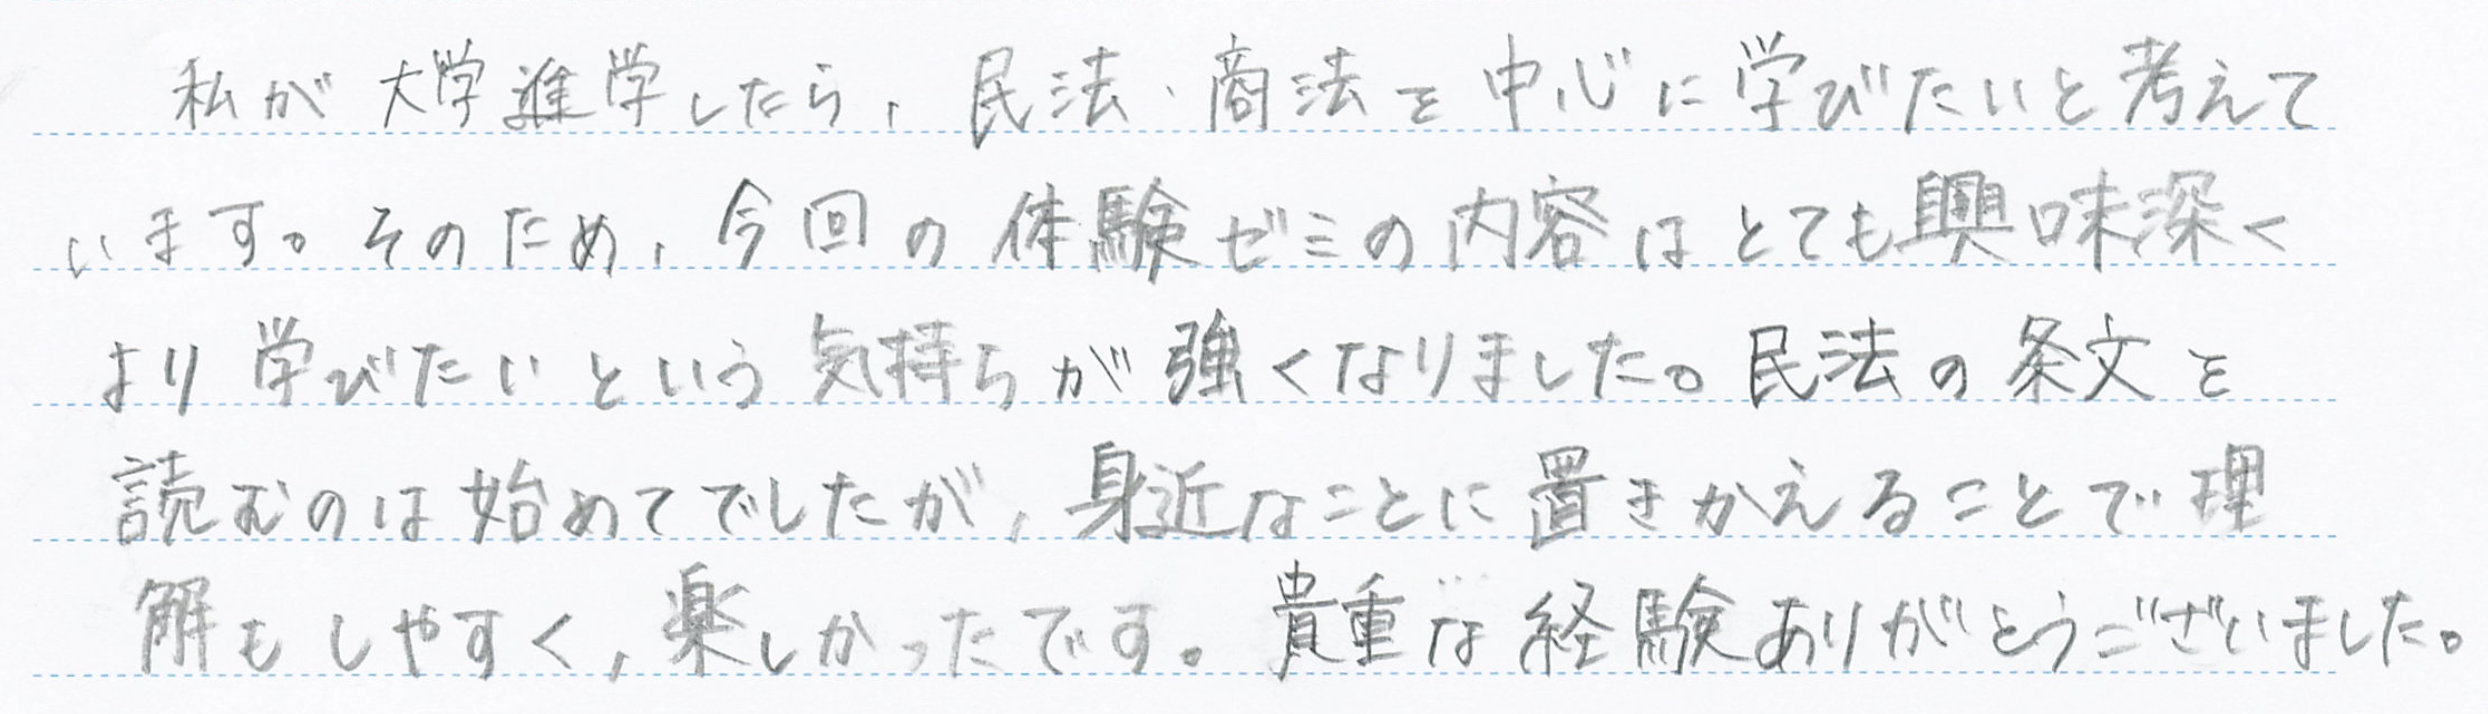 私が大学進学したら、民法・商法を中心に学びたいと考えて
います。そのため、今回の体験ゼミの内容はとても興味深く
より学びたいという気持ちが強くなりました。民法の条文を
読むのは始めてでしたが、身近なことに置きかえることで理
解もしやすく、楽しかったです。貴重な経験ありがとうございました。